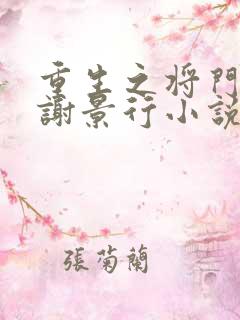 重生之将門
謝景行小説
張菊蘭